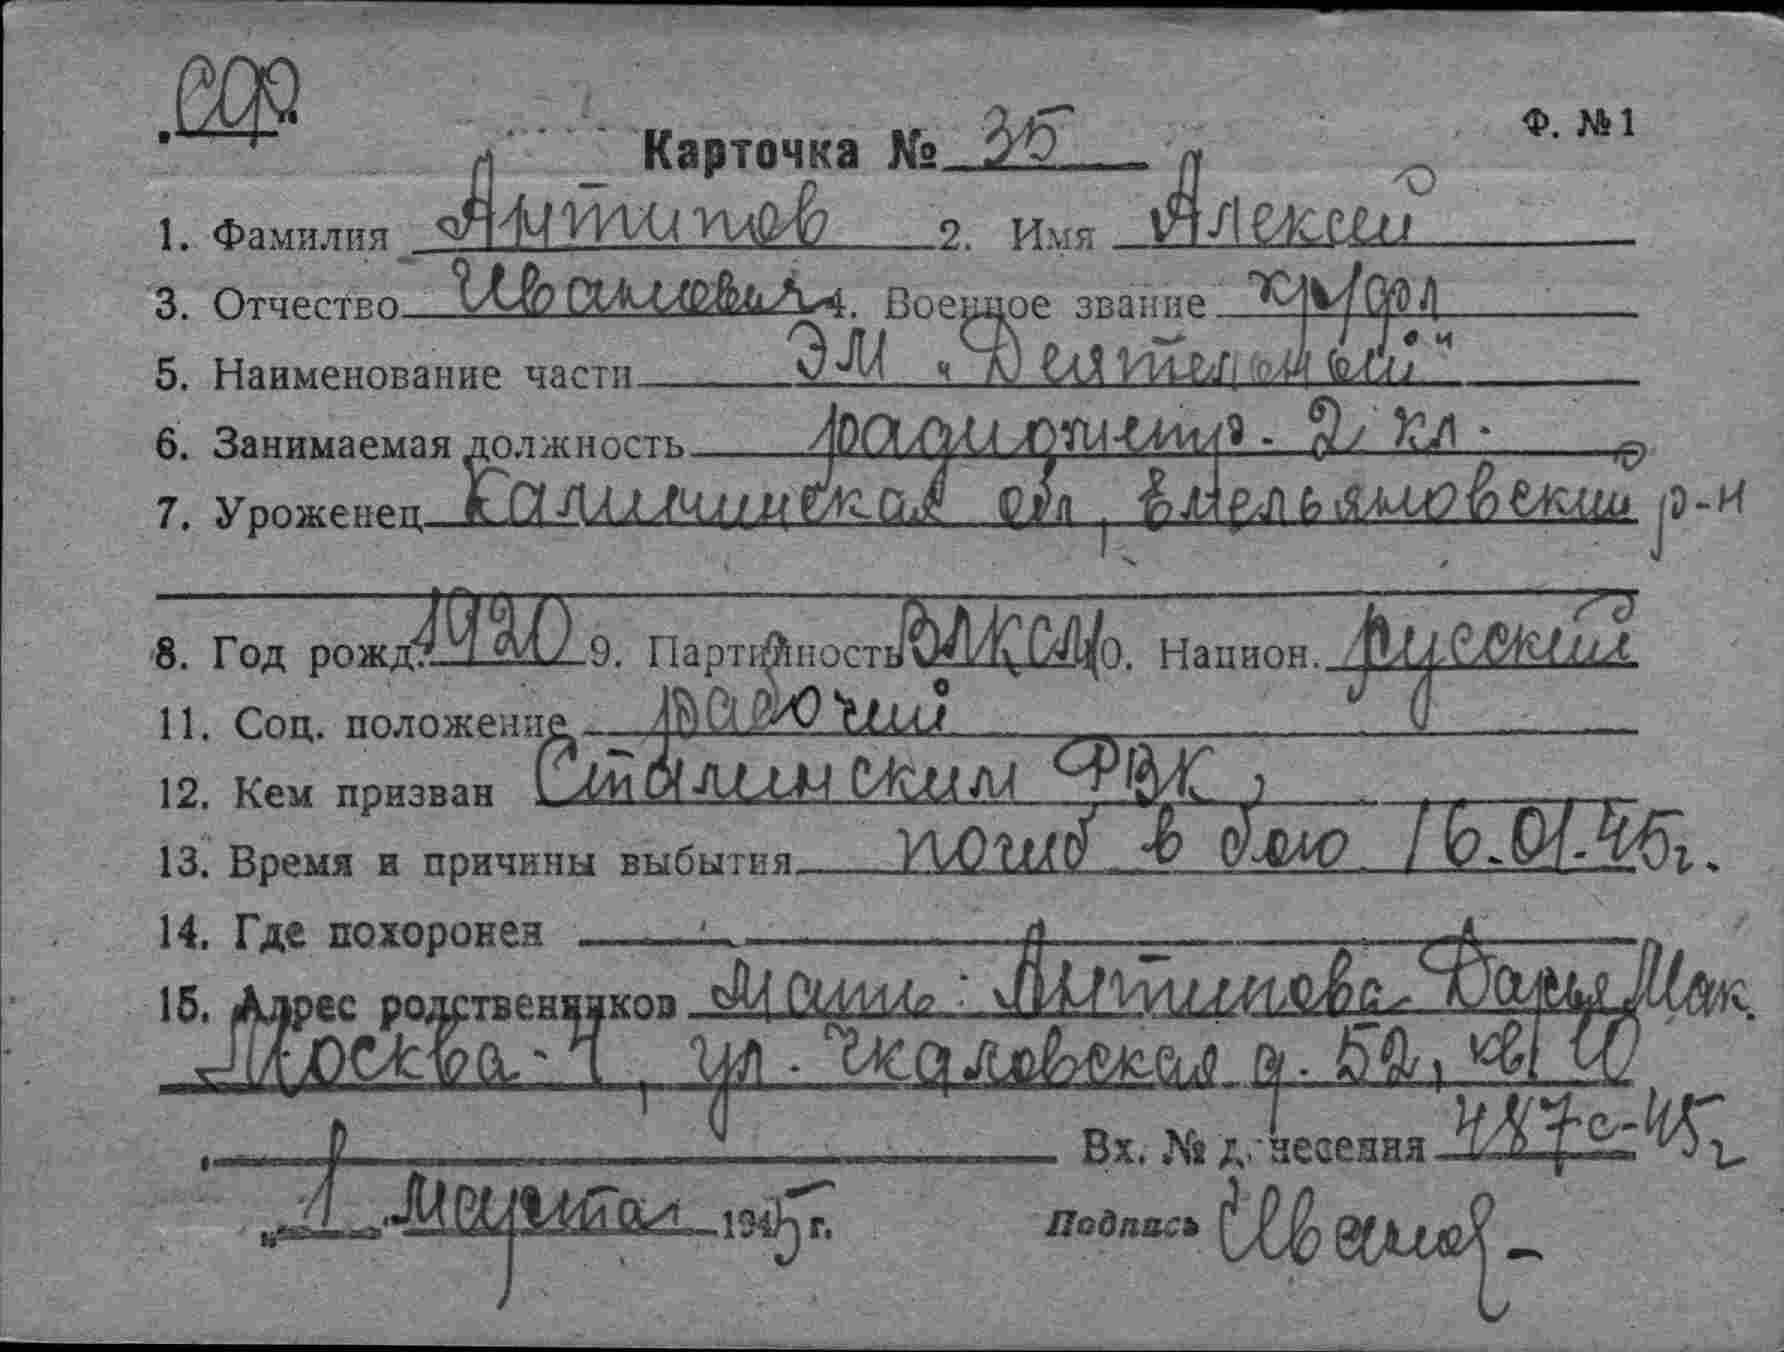 Ф. №1
Карточка № 35
1. Фамилия Антипов 2. Имя Алексей
3. Отчество Иванович 4. Военное звание кр/фл
5. Наименование части ЭМ „Деятельный"
6. Занимаемая должность радиометр. 2 кл.
7. Уроженец Калининская обл, Емельяновский р-н
8. Год рожд. 1920 9. Партийность ВЛКСМ 10. Национ. русский
11. Соц. положение рабочий
12. Кем призван Сталинским РВК,
13. Время и причины выбытия погиб в бою 16.01.45г.
14. Где похоронен
15. Адрес родственников Мать: Антипова Дарья Мак.
Москва-4, ул. Чкаловская д. 52, кв 10
Вх. № донесения 487с-45г
„1" Марта 1945 г. Подпись Иванов